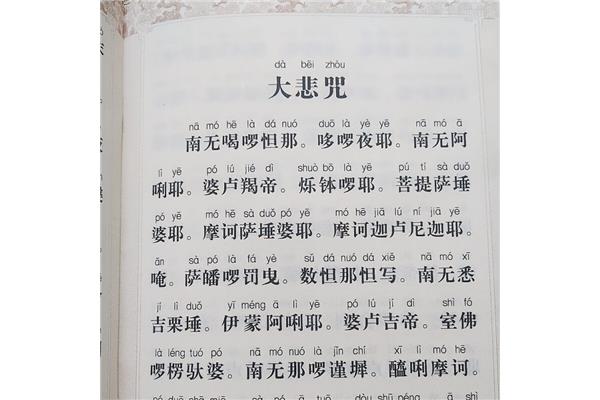 dà bēi zhòu
大悲咒
nā mó hē là dá nuó duō là yè yē nā mó ā
南无喝啰怛那。哆啰夜耶。南无阿
lì yē pó lú jié dì shuò bō là yē pú tí sà duǒ
唎耶。婆卢羯帝。烁钵啰耶。菩提萨埵
pó yē mó hē sà duǒ pó yē mó hē jiā lú ní jiā yē
婆耶。摩诃萨埵婆耶。摩诃迦卢尼迦耶。
ān sà pó là fá yè sǔ dá nuó dá xiě nā mó xī
唵。萨皤啰罚曳。数怛那怛写。南无悉
jí lì duǒ yī méng ā lì yē pó lú jí dì shì fó
吉栗埵。伊蒙阿唎耶。婆卢吉帝。室佛
là léng tuó pó nā mó nuó là jǐn chí xī lì mó hē
啰愣驮婆。南无那啰谨墀。醯唎摩诃。